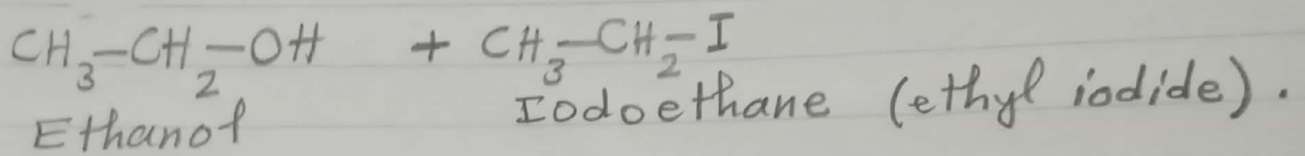 CH₃-CH₂-OH + CH₃-CH₂-I
Ethanol Iodoethane (ethyl iodide).